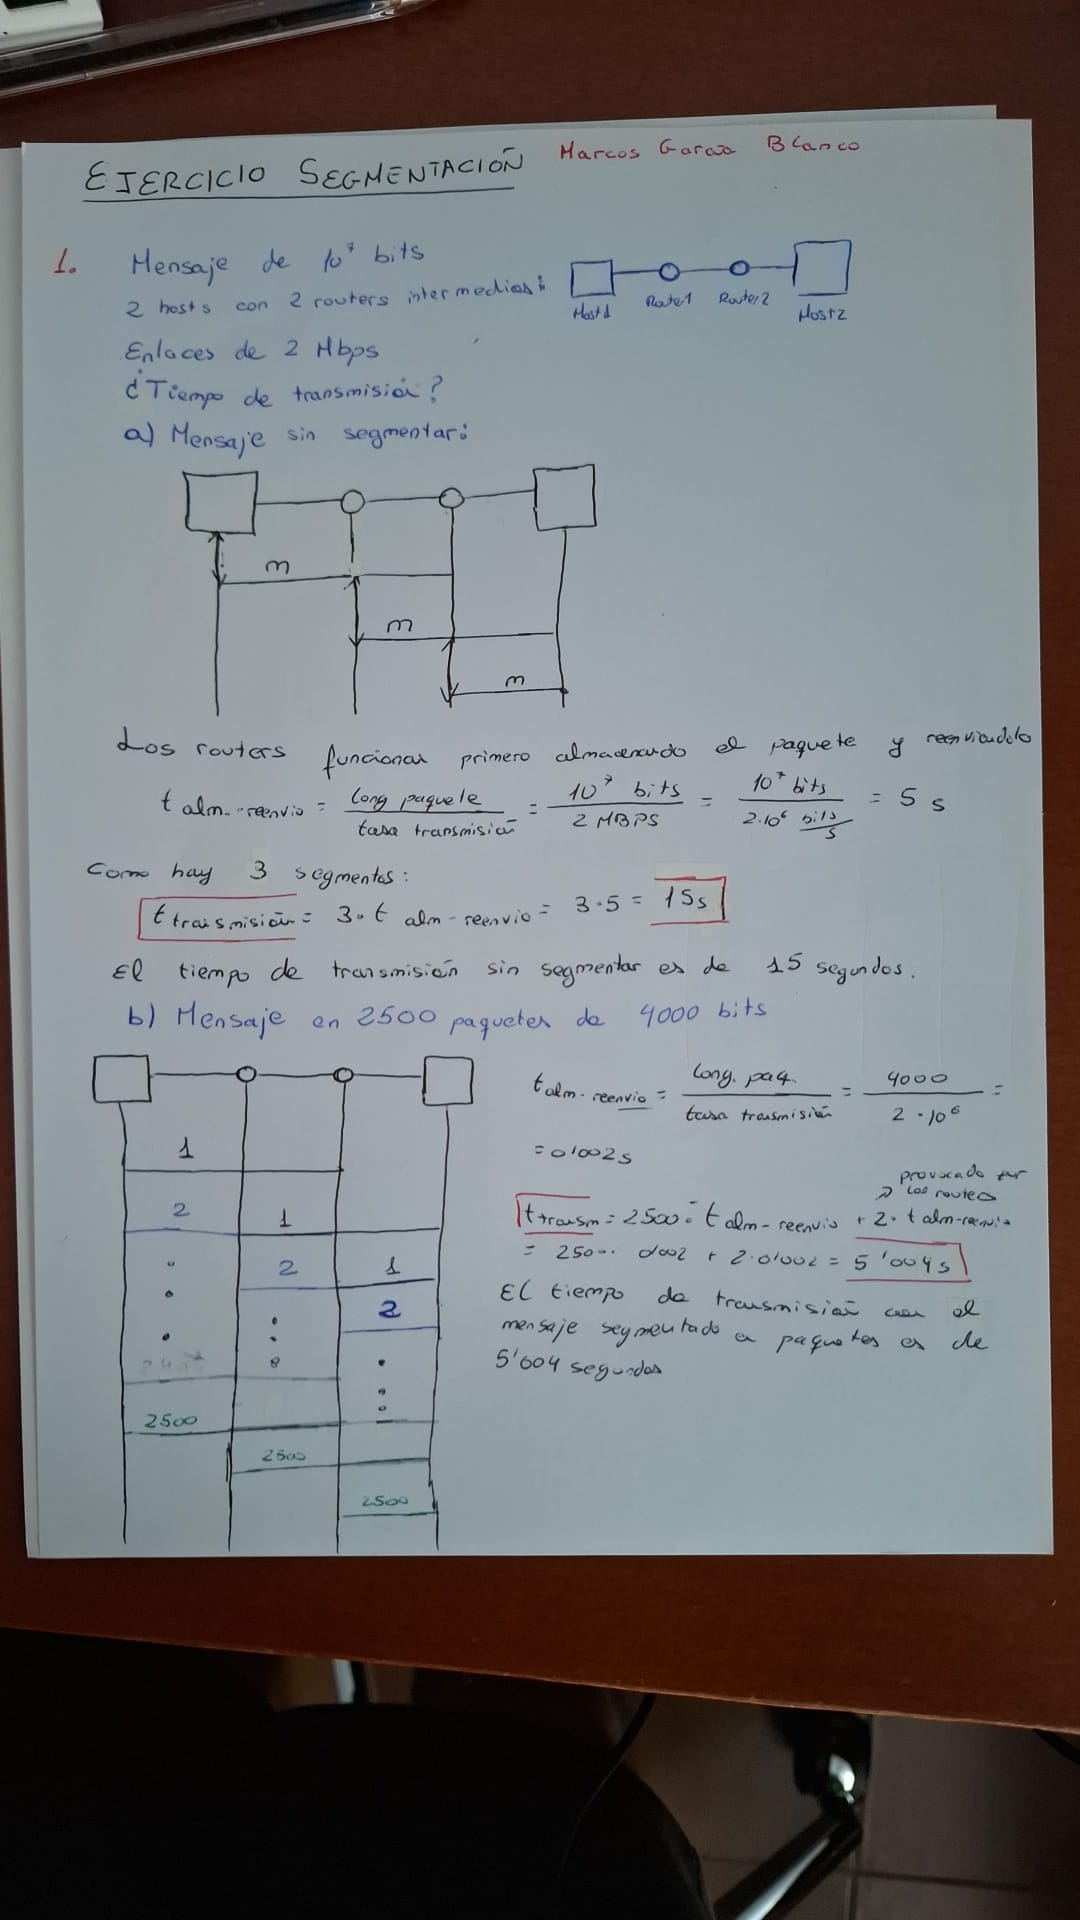 EJERCICIO SEGMENTACIÓN Marcos Garcia Blanco
1. Mensaje de 10⁷ bits
2 hosts con 2 routers intermedios:
Host1 Router1 Router2 Host2
Enlaces de 2 Mbps
¿Tiempo de transmisión?
a) Mensaje sin segmentar:
m
m
m
Los routers funcionan primero almacenando el paquete y reenviandolo
t alm.-reenvio = long paquete / tasa transmisión = 10⁷ bits / 2 MBPS = 10⁷ bits / 2·10⁶ bits/s = 5 s
Como hay 3 segmentos:
t transmisión = 3·t alm-reenvio = 3·5 = 15s
El tiempo de transmisión sin segmentar es de 15 segundos.
b) Mensaje en 2500 paquetes de 4000 bits
t alm.-reenvio = long. paq. / tasa transmisión = 4000 / 2·10⁶ =
= 0'002s
provocado por
los routers
t transm = 2500·t alm-reenvio + 2·t alm-reenvio
= 2500·0'002 + 2·0'002 = 5'004s
El tiempo de transmisión con el
mensaje segmentado en paquetes es de
5'004 segundos
1
2 1
2 1
2
2500
2500
2500